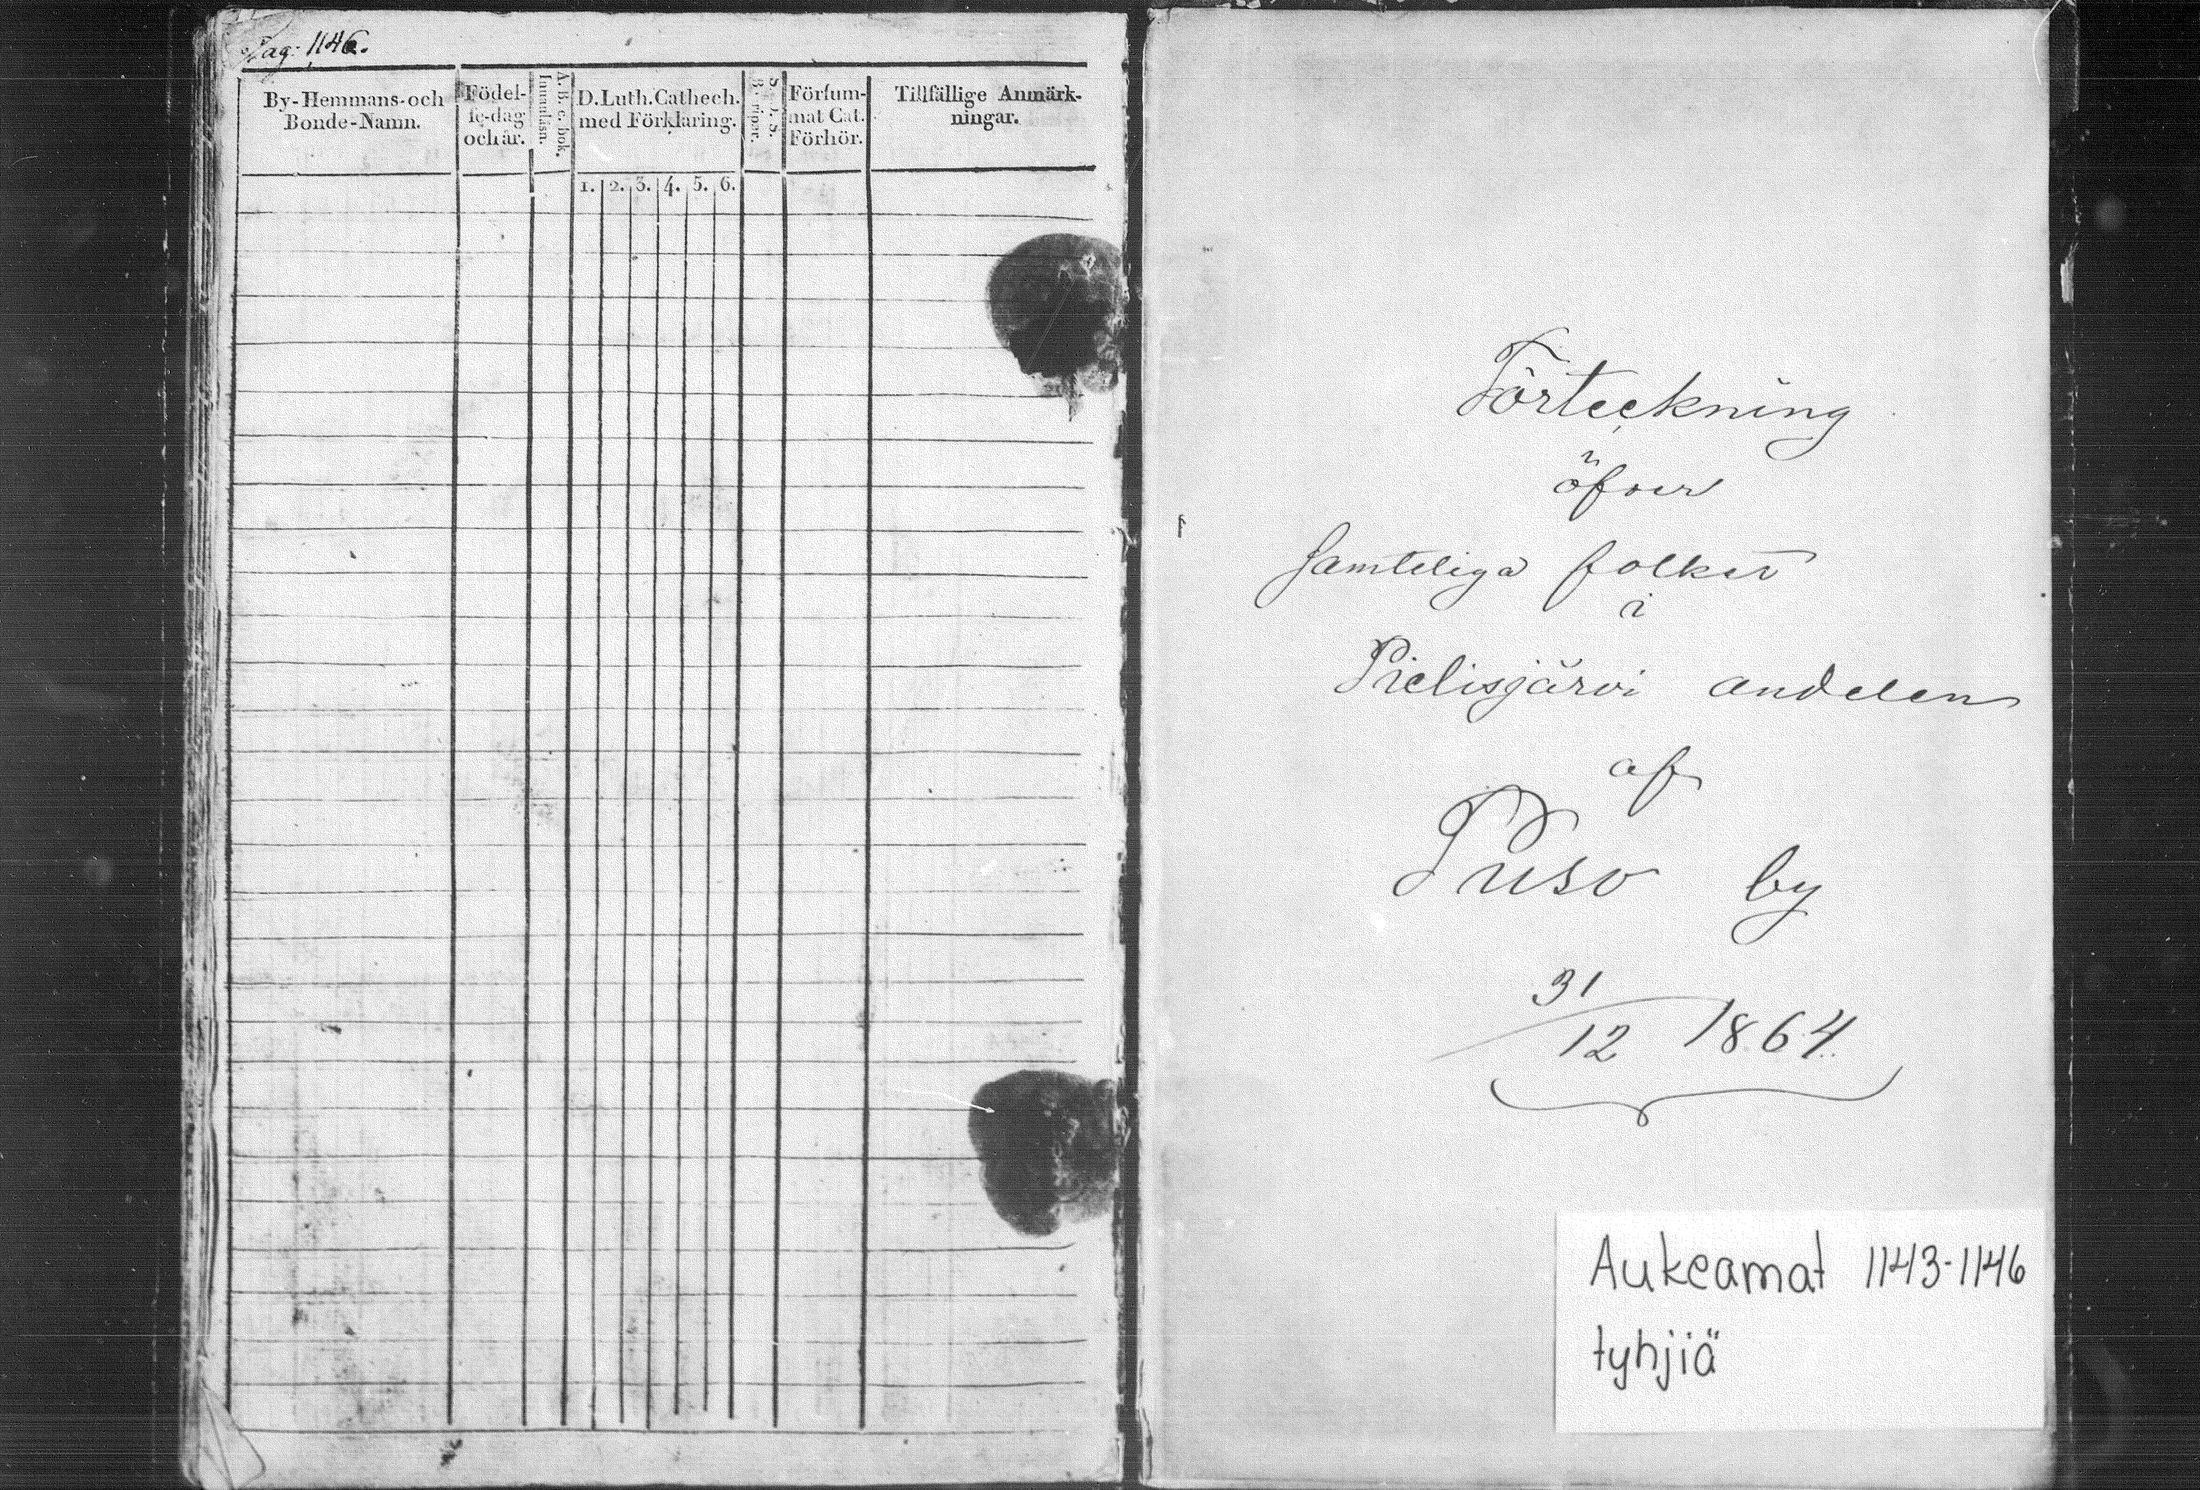 Pag: 1146.
By-Hemmans-och
Bonde-Namn.
Födel-
se-dag
och år.
A. B. c. bok.
Innanläsn.
D. Luth. Cathech.
med Förklaring.
1. 2. 3. 4. 5. 6.
Försum-
mat Cat.
Förhör.
Tillfällige Anmärk-
ningar.
Förteckning
öfver
Samteliga folket
i
Pielisjärvi andelen
af
Puso by
31/12 1864.
Aukeamat 1143-1146
tyhjiä